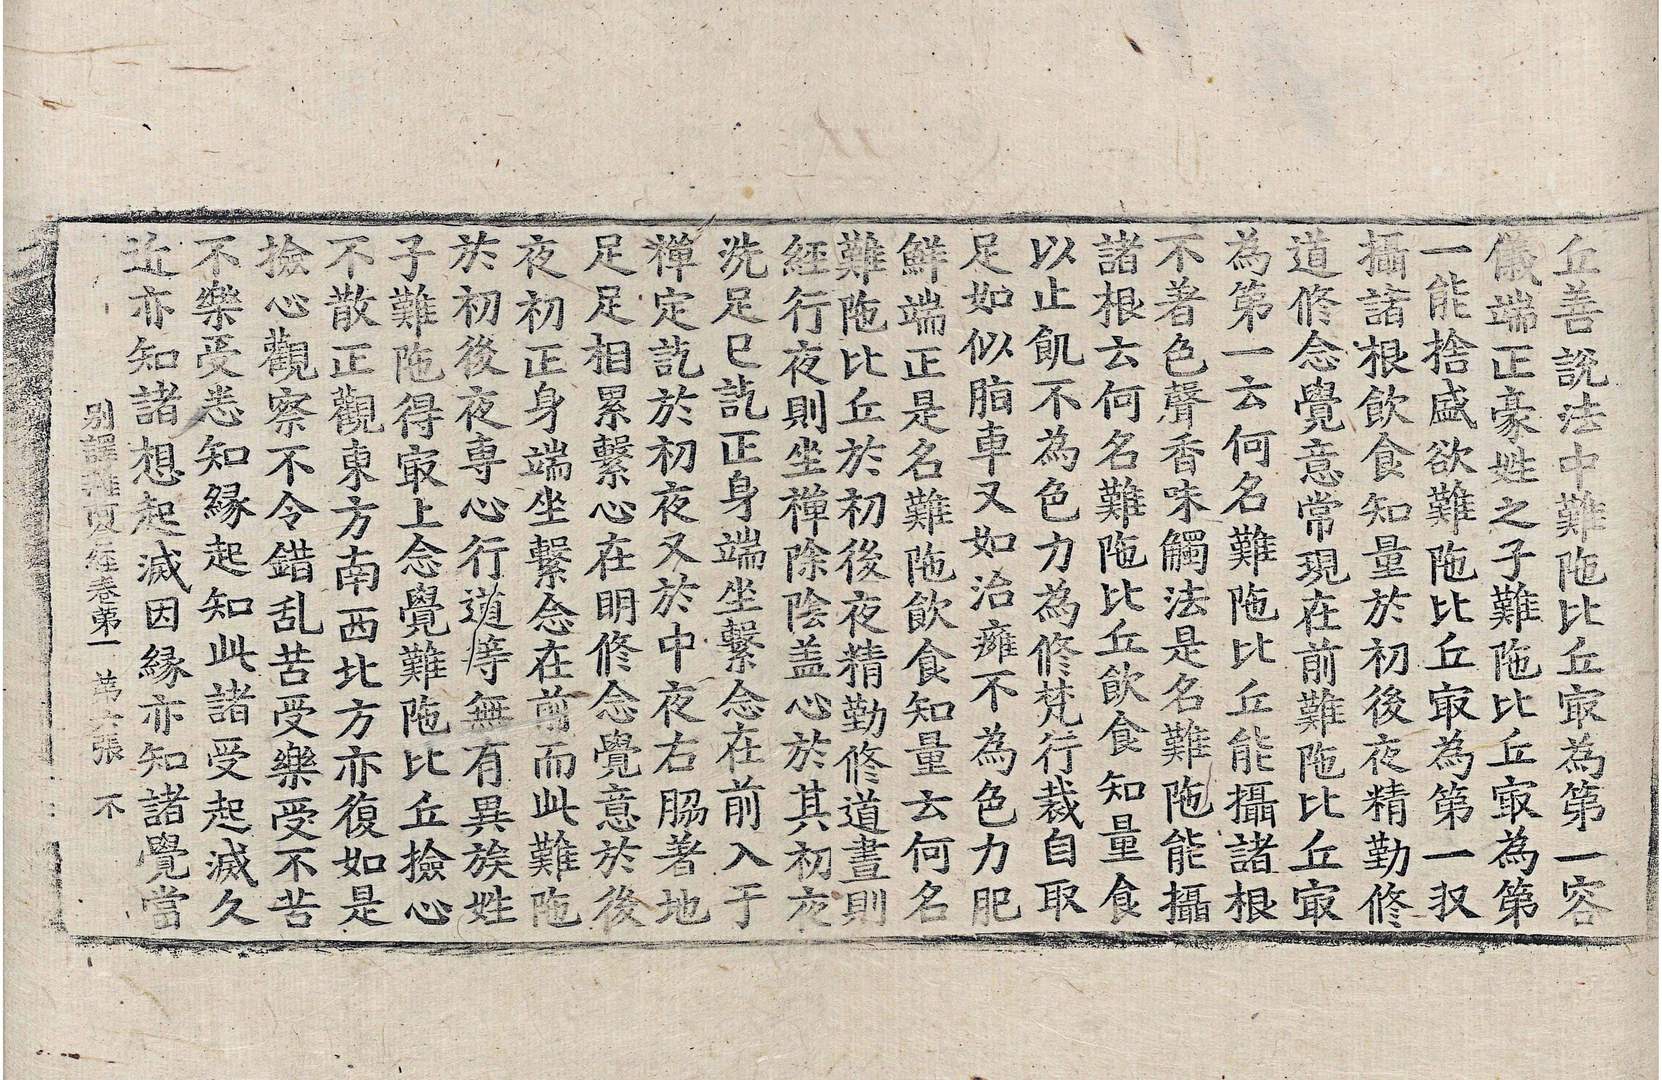 丘善說法中難陁比丘㝡為第一容
儀端正豪姓之子難陁比丘㝡為第
一能捨盛欲難陁比丘㝡為第一㧓
攝諸根飲食知量於初後夜精勤修
道修念覺意常現在前難陁比丘㝡
為第一云何名難陁比丘能攝諸根
不著色聲香味觸法是名難陁能攝
諸根云何名難陁比丘飲食知量食
以止飢不為色力為修梵行裁自取
足如似脂車又如治癕不為色力肥
鮮端正是名難陁飲食知量云何名
難陁比丘於初後夜精勤修道晝則
經行夜則坐禪除陰盖心於其初夜
洗足已訖正身端坐繫念在前入于
禪定訖於初夜又於中夜右脇著地
足足相累繫心在明修念覺意於後
夜初正身端坐繫念在前而此難陁
於初後夜專心行道等無有異族姓
子難陁得㝡上念覺難陁比丘撿心
不散正觀東方南西北方亦復如是
撿心觀察不令錯乱苦受樂受不苦
不樂受悉知緣起知此諸受起滅久
近亦知諸想起滅因緣亦知諸覺當
別譯雜阿含經卷第一　第六張　不